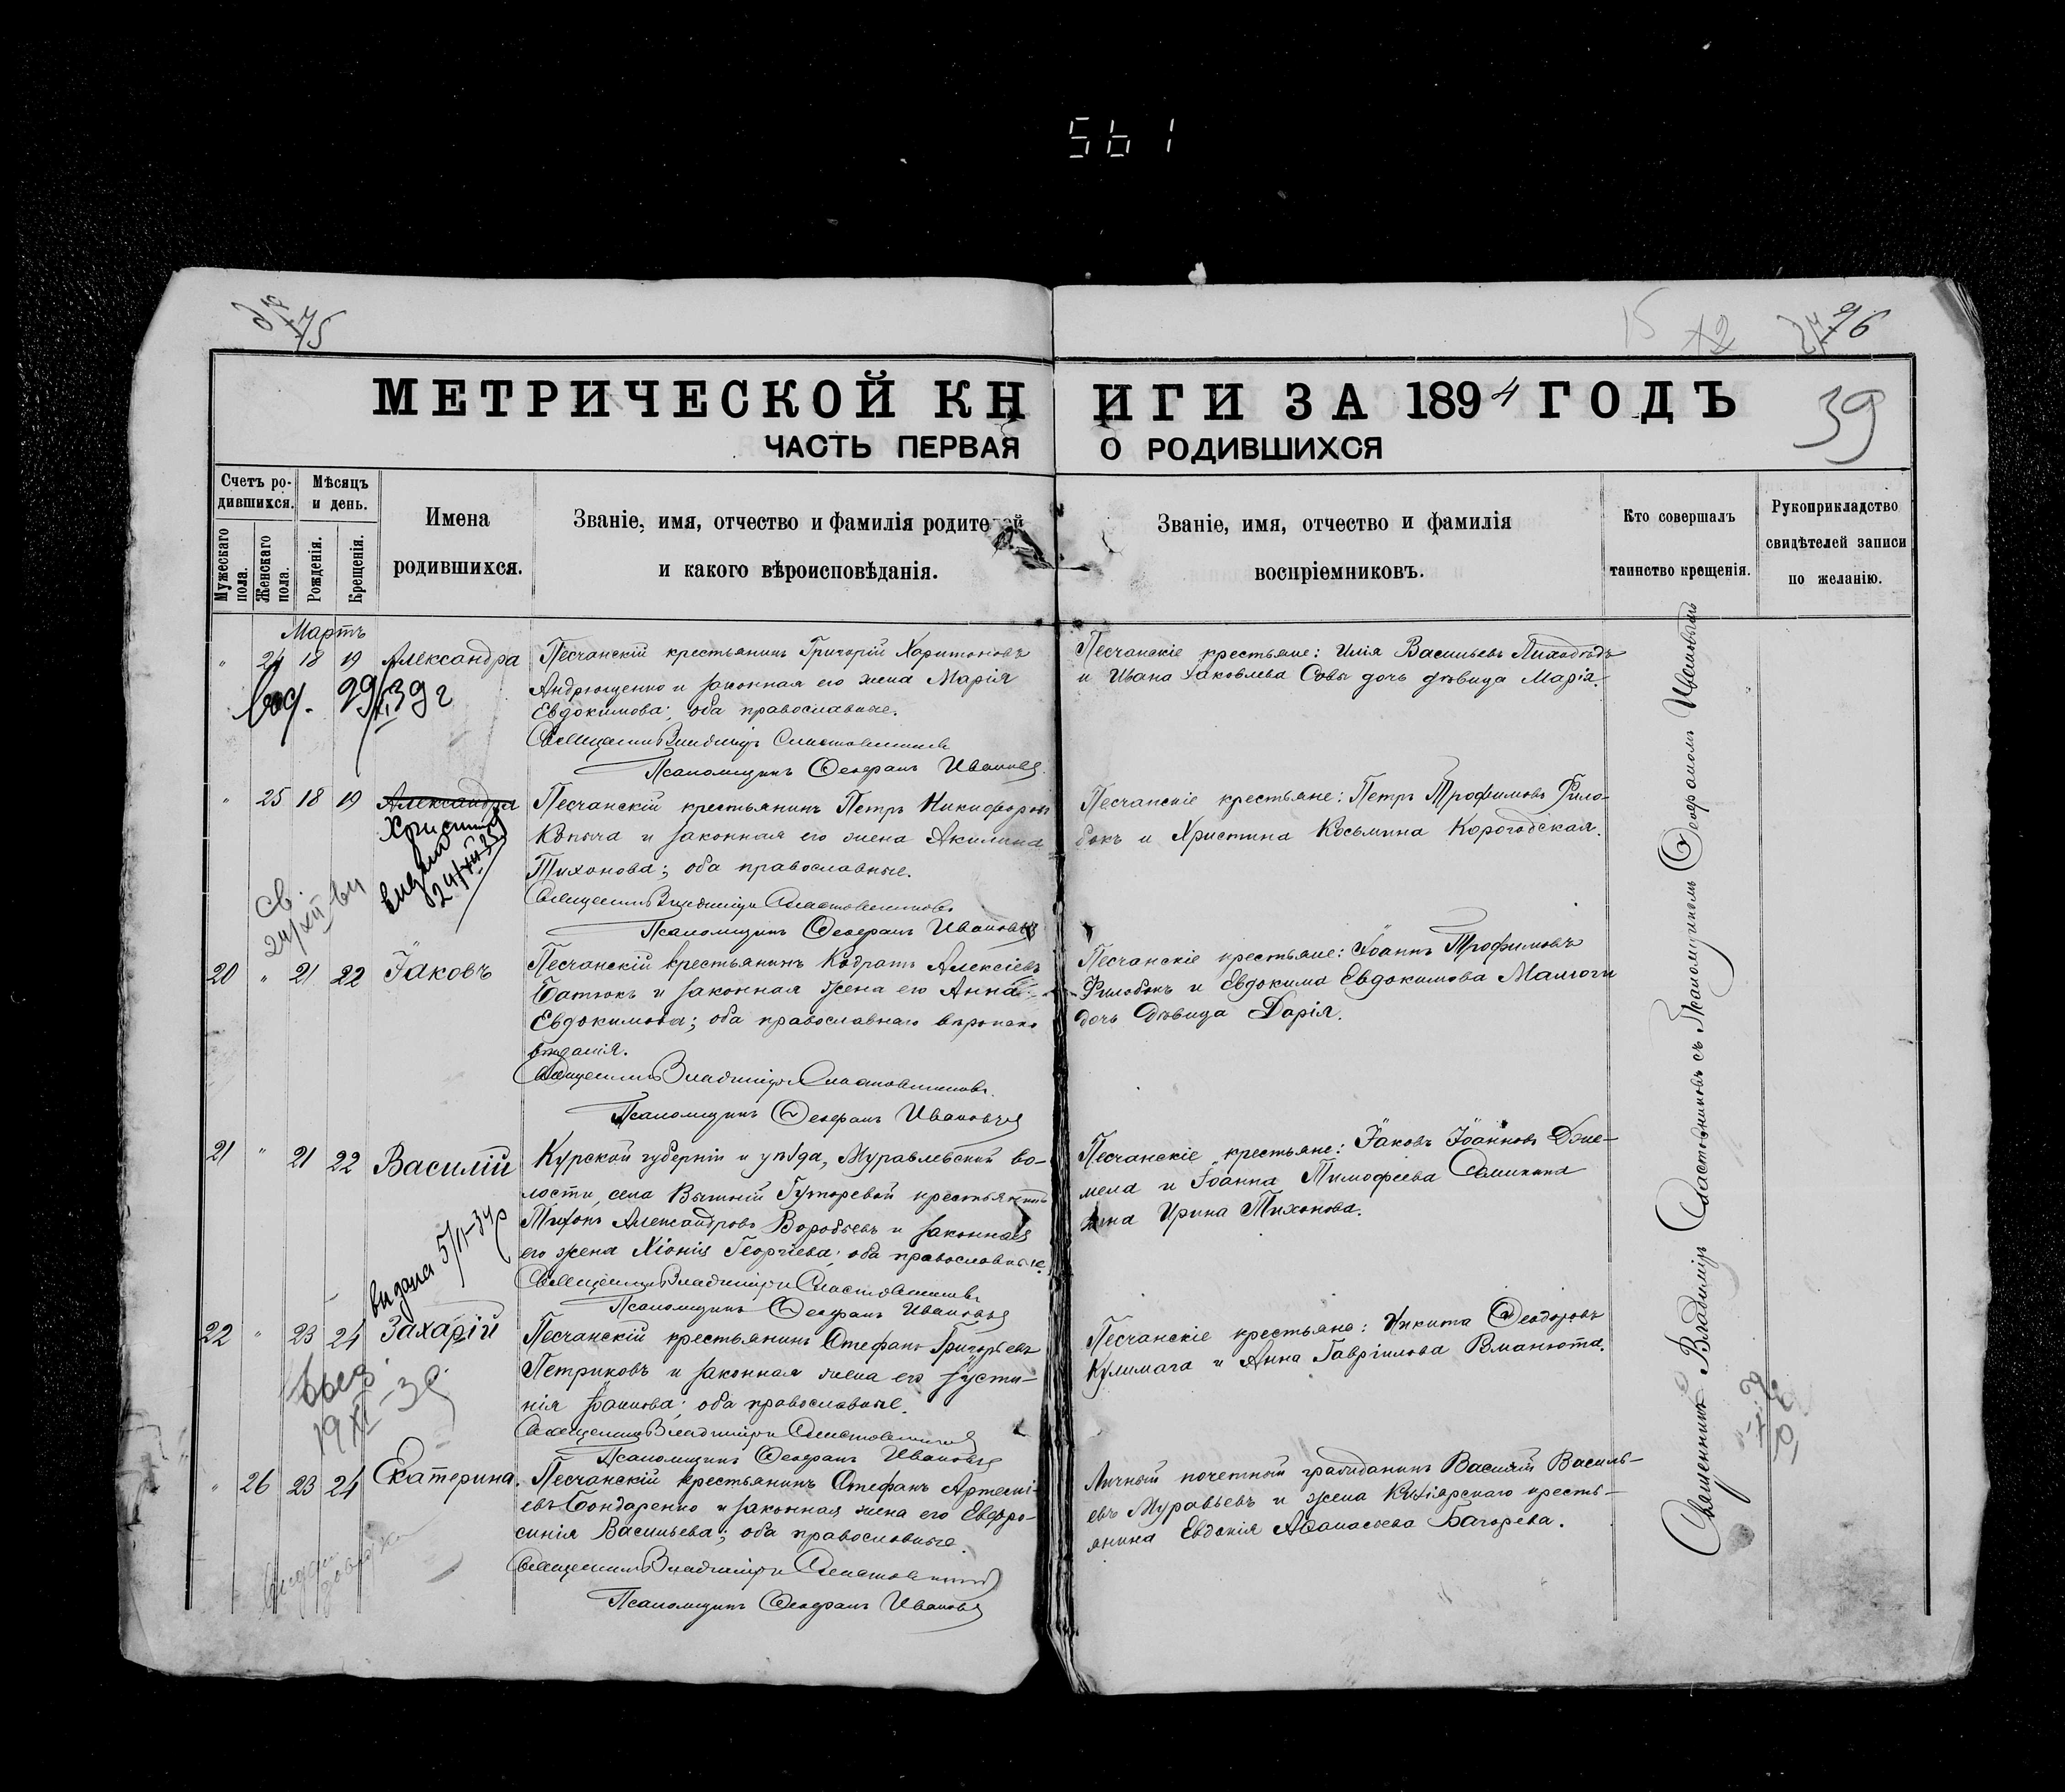 561
75
15
42
96
МЕТРИЧЕСКОЙ КНИГИ ЗА 1894 ГОДЪ
39
ЧАСТЬ ПЕРВАЯ О РОДИВШИХСЯ
Счетъ ро-
дившихся.
Мужескаго
пола.
Женскаго
пола.
Мѣсяцъ
и день.
Рожденія.
Крещенія.
Имена
родившихся.
Званіе, имя, отчество и фамилія родителей
и какого вѣроисповѣданія.
Званіе, имя, отчество и фамилія
воспріемниковъ.
Кто совершалъ
таинство крещенія.
Рукоприкладство
свидѣтелей записи
по желанію.
Мартъ
" 24 18 19 Александра
Песчанскій крестьянинъ Григорій Харитоновъ
Андрющенко и законная его жена Марія
Евдокимова; оба православные.
Священникъ Владиміръ Сластовниковъ
Псаломщикъ Ѳеофанъ Ивановъ
Песчанскіе крестьяне: Илія Васильевъ Лиходѣдъ
и Ивана Іаковлева Совы дочь дѣвица Марія.
29 39 г
" 25 18 19 Александра
Христина
видана
24/XII 35
св.
24/XII
Песчанскій крестьянинъ Петръ Никифоровъ
Копыча и законная его жена Акилина
Тихонова; оба православные.
Священникъ Владиміръ Сластовниковъ
Псаломщикъ Ѳеофанъ Ивановъ
Песчанскіе крестьяне: Петръ Трофимовъ Фило-
бокъ и Христина Косьмина Корогодская.
20 " 21 22 Іаковъ
Песчанскій крестьянинъ Кодратъ Алексіевъ
Батюкъ и законная жена его Анна
Евдокимова; оба православнаго вѣроиспо
вѣданія.
Священникъ Владиміръ Сластовниковъ
Псаломщикъ Ѳеофанъ Ивановъ
Песчанскіе крестьяне: Іоаннъ Трофимовъ
Филобокъ и Евдокима Евдокимова Малюги
дочь дѣвица Дарія.
21 " 21 22 Василій
видана 5/II-34 р
Курской губерніи и уѣзда, Муравлевской во-
лости, села Вышній Гуторевой крестьянинъ
Тихонъ Александровъ Воробьевъ и законная
его жена Хіонія Георгіева; оба православные.
Священникъ Владиміръ Сластовниковъ
Псаломщикъ Ѳеофанъ Ивановъ
Песчанскіе крестьяне: Іаковъ Іоанновъ Дже-
мела и Іоанна Тимофеева Самикина
жена Ирина Тихонова.
22 " 23 24 Захарій
19 XI-39
Песчанскій крестьянинъ Стефанъ Григорьевъ
Петриковъ и законная жена его Іусти-
нія Іоаннова; оба православные.
Священникъ Владиміръ Сластовниковъ
Псаломщикъ Ѳеофанъ Ивановъ
Песчанскіе крестьяне: Никита Ѳеодоровъ
Кулимага и Анна Гавріилова Вманюта.
" 26 23 24 Екатерина.
Песчанскій крестьянинъ Стефанъ Артемі-
евъ Бондаренко и законная жена его Евфро-
синія Васильева; оба православные.
Священникъ Владиміръ Сластовниковъ
Псаломщикъ Ѳеофанъ Ивановъ
Личный почетный гражданинъ Василій Василь-
евъ Муравьевъ и жена крестья-
янина Евдокія Аѳанасьева Багорева.
Священникъ Владиміръ Сластовниковъ съ Псаломщикомъ Ѳеофаномъ Ивановымъ